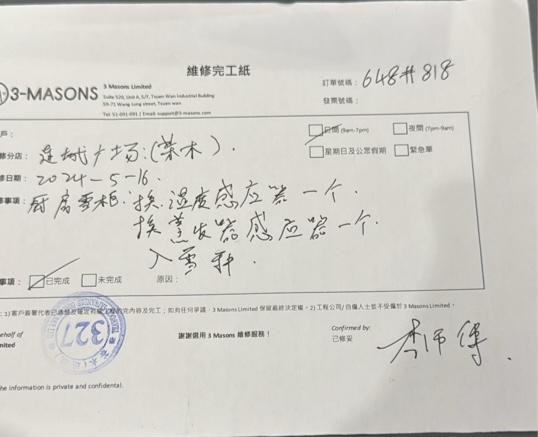 維修完工紙
3-MASONS
3 Masons Limited
Suite 520, Unit A, 5/F, Tsuen Wan Industrial Building
59-71 Wang Lung street, Tsuen wan
Tel: 51-091-091 | Email: support@3-masons.com
訂單號碼： 648#818
發票號碼：
戶：
日間 (9am-7pm) 夜間 (7pm-9am)
修分店： 广场：(茶木).
星期日及公眾假期 緊急單
修日期： 2024-5-16.
修事項： 厨房雪柜：换湿度感应器一个.
换蒸发器感应器一个.
入雪种.
事項： 已完成 未完成 原因：
：1)客戶簽署代表已清楚及確定有關工程的完內容及完工；如有任何爭議，3 Masons Limited 保留最終決定權。2)工程公司/自僱人士並不受僱於 3 Masons Limited。
327
ehalf of
mited
謝謝選用 3 Masons 維修服務！
Confirmed by:
已修妥
李师傅.
he information is private and confidental.